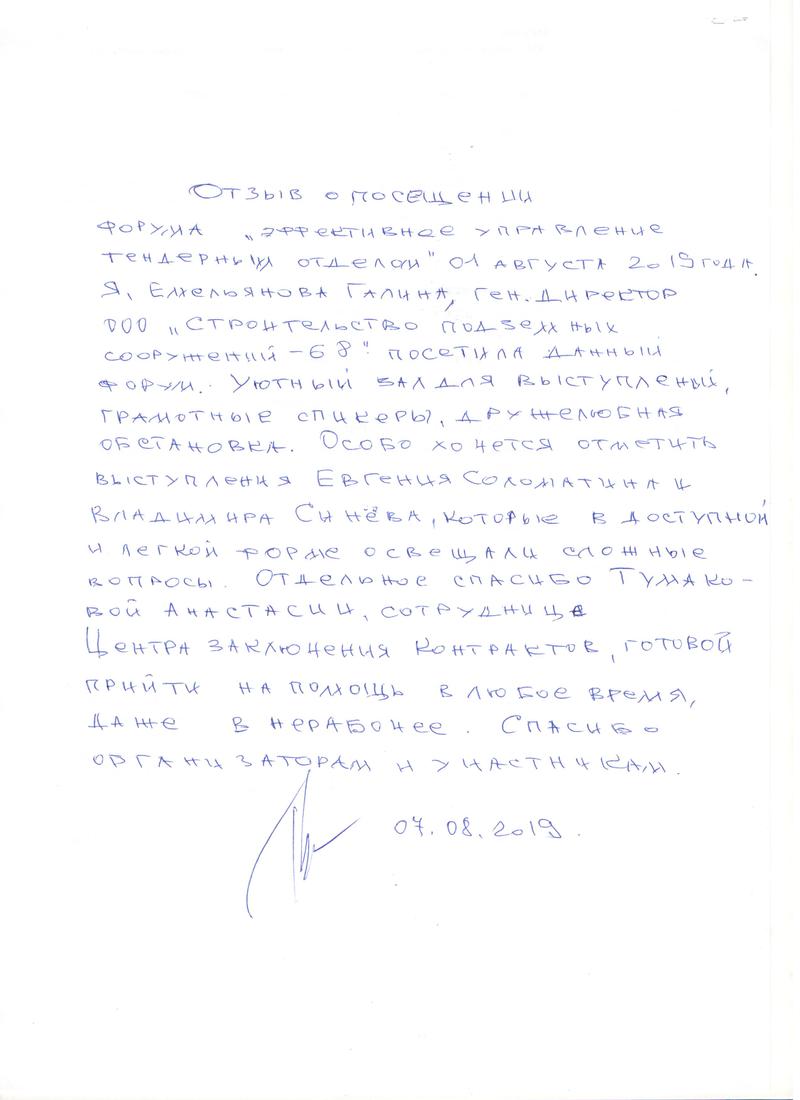 Отзыв о посещении
форума „эффективное управление
тендерным отделом" 01 августа 2019 года.
Я, Емельянова Галина, ген. директор
ООО „Строительство подземных
сооружений – 68" посетила данный
форум. Уютный зал для выступлений,
грамотные спикеры, дружелюбная
обстановка. Особо хочется отметить
выступления Евгения Соломатина и
Владимира Синёва, которые в доступной
и легкой форме освещали сложные
вопросы. Отдельное спасибо Тумако-
вой Анастасии, сотруднице
Центра заключения контрактов, готовой
прийти на помощь в любое время,
даже в нерабочее. Спасибо
организаторам и участникам.
07.08.2019.